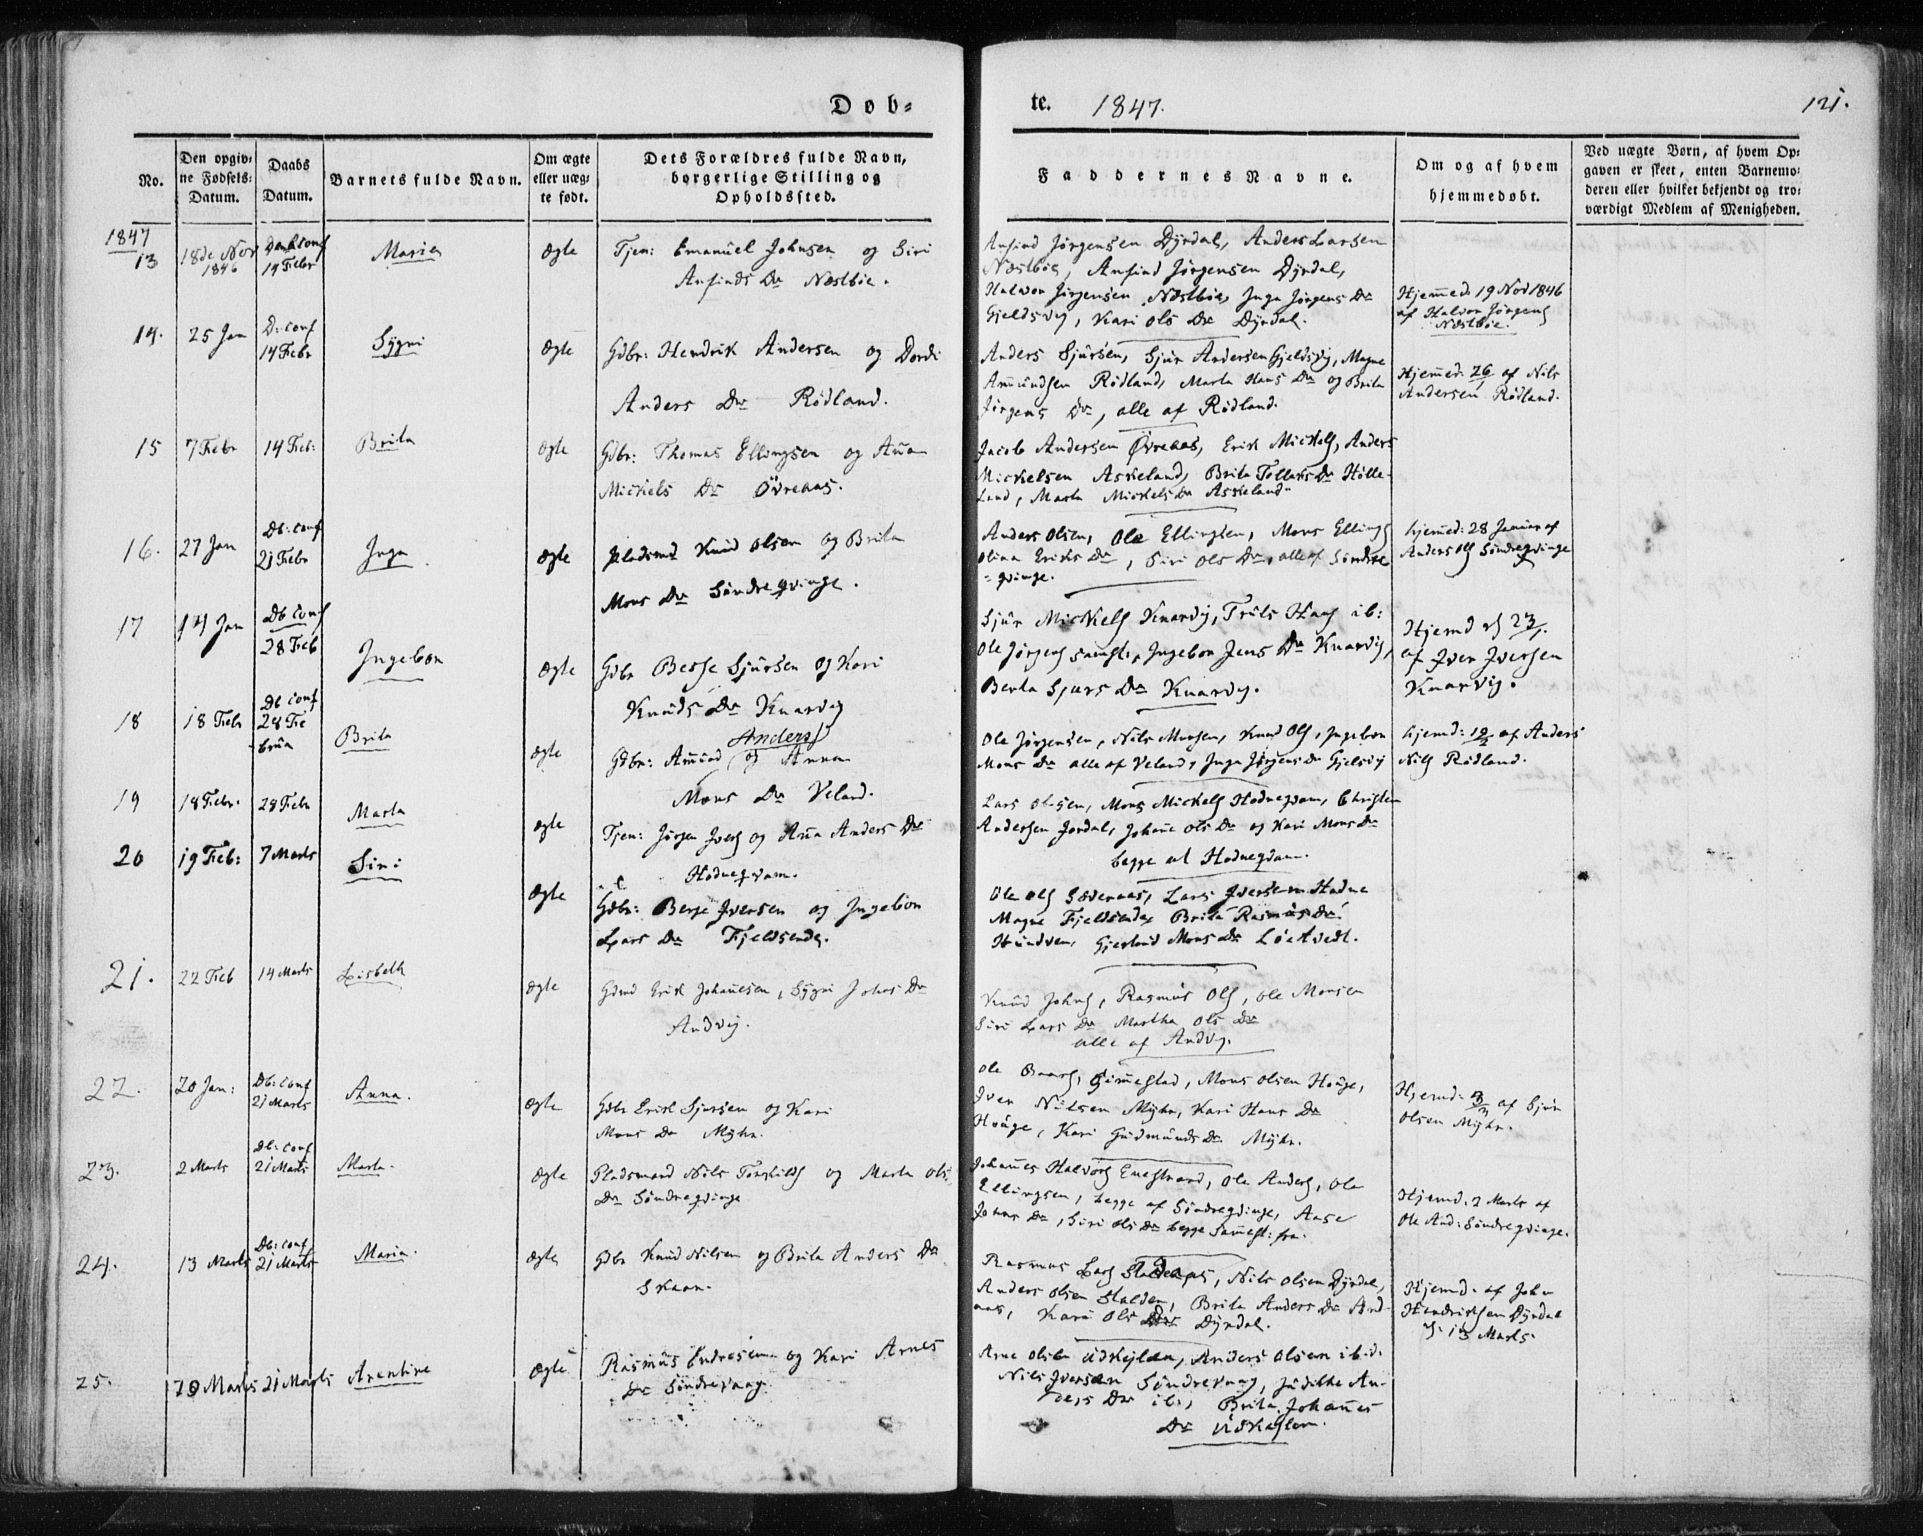 Døb-
te. 1847.
121.
No.
Den opgiv-
ne Fødsels-
Datum.
Daabs
Datum.
Barnets fulde Navn.
Om ægte
eller uæg-
te født.
Dets Forældres fulde Navn,
borgerlige Stilling og
Opholdssted.
Faddernes Navne.
Om og af hvem
hjemmedøbt.
Ved uægte Børn, af hvem Op-
gaven er skeet, enten Barnemo-
deren eller hvilket bekjendt og tro-
værdigt Medlem af Menigheden.
1847
13
18de Nov
1846
Daab conf
14 Febr
Maria
Ægte
Tjen: Emanuel Johnsen og Siri
Anfinds Dr Næstbøe.
Anfind Jørgensen Dyrdal, Anders Larsen
Næstbøe, Anfind Jørgensen Dyrdal,
Halvor Jørgensen Næstbøe, Inga Jørgens Dr
Gjeldsvig, Kari Ols Dr Dyrdal.
Hjemmed: 19 Nov 1846
af Halvor Jørgens
Næstbøe.
14.
25 Jan
D: conf
14 Febr
Sygni
Ægte
Gdbr: Hendrik Andersen og Dordi
Anders Dr Rødland.
Anders Sjursen, Sjur Andersen Gjeldsvig, Magne
Amundsen Rødland, Marta Hans Dr og Brita
Jørgens Dr, alle af Rødland.
Hjemmed: 26/1 af Nils
Andersen Rødland.
15
7 Febr
14 Feb:
Brita
Ægte
Gdbr: Thomas Ellingsen og Anna
Mickels Dr Övreaas.
Jacob Andersen Øvreaas, Erik Mickels, Anders
Mickelsen Askeland, Brita Tollaks Dr Hølle-
land, Marta Mickels Dr Askeland
16.
27 Jan
Db: conf
21 Febr
Inga
Ægte
Pladsmd Knud Olsen og Brita
Mons Dr Søndreqvinge.
Anders Olsen, Ole Ellingsen, Mons Ellings
Olina Eriks Dr, Siri Ols Dr, alle af Søndre
=qvinge.
hjemmed: 28 Januar af
Anders Ols Søndreqvinge
17
14 Jan
Db conf
28 Feb
Ingebor
Ægte
Gdbr Berge Sjursen og Kari
Knuds Dr Knarvig
Sjur Mickels Knarvig, Truls Haas ib:
Ole Jørgens samst:, Ingebor Jens Dr Knarvig,
Berta Sjurs Dr Knarvig.
Hjemd d 23/1.
af Iver Iversen
Knarvig.
18
18 Feb
Db conf
28 Fe
brua
Brita
Ægte
Anders
Gdbr: Amund og Anna
Mons Dr Veland.
Ole Jørgensen, Nils Monsen, Knud Ols, Ingebor
Mons Dr alle af Veland, Inga Jørgens Dr Gjelsvig
hjemd: 19/2 af Anders
Nils Rødland.
19
18 Febr.
28 Febr
Marta
Ægte
Tjen: Jørgen Ivers og Anna Anders Dr
Hodneqvam.
Lars Olesen, Mons Mickels Hodneqvam, Christen
Andersen Jordal, Johanne Ols Dr og Kari Mons Dr
begge af Hodneqvam.
20
19 Feb:
7 Marts
Siri
Ægte
Gdbr: Berge Iversen og Ingebor
Lars Dr Fjeldsende.
Ole Ols Sævereaas, Lars Iversen Hodne
Magne Fjeldsende, Brita Rasmus Dr
Hundven, Gjertrud Mons Dr Løetvedt.
21.
22 Feb
14 Marts
Lisbeth
Ægte
Gdmd Erik Johanesen, Sygni Johns Dr
Andvig.
Knud Johns, Rasmus Ols, Ole Monsen
Siri Lars Dr Martha Ols Dr
alle af Andvig.
22.
20 Jan:
Db: conf
21 Marts
Anna.
Ægte
Gdbr Erik Sjursen og Kari
Mons Dr Myhr.
Ole Baars, Gimmestad, Mons Olsen Houge,
Iver Nilsen Myhr, Kari Hans Dr
Houge, Kari Gudmunds Dr Myhr.
Hjemd: af Sjur
Olsen Myhr.
23.
2 Marts
Db: conf
21 Marts
Marta.
Ægte
Pladsmand Nils Torkilds og Marta Ols
Dr Søndreqvinge
Johannes Halvors Enestrand, Ole Anders, Ole
Ellingsen, begge af Søndreqvinge, Aase
Jonas Dr, Siri Ols Dr begge sammest: fra.
Hjemd: 2 Marts af
Ole And: Søndreqvinge.
24.
13 Marts
Db: conf
21 Marts
Maria.
Ægte
Gdbr Knud Nilsen og Brita Anders Dr
Skaar.
Rasmus Lars, Nils Olsen Dyrdal,
Anders Olsen Halden, Brita Anders Dr And-
aas, Kari Ols Dr Dyrdal.
Hjemd. af John
Hendriksen Dyrdal
d. 13 Marts.
25.
20 Marts
21 Marts
Arentine
Ægte
Rasmus Endresen og Kari Arnes
Dr Søndrevaag
Arne Olsen Udkejlen, Anders Olsen ibid.
Nils Iversen Søndrevaag, Judithe An-
ders Dr ib:, Brita Johannes
Dr Udkejlen.